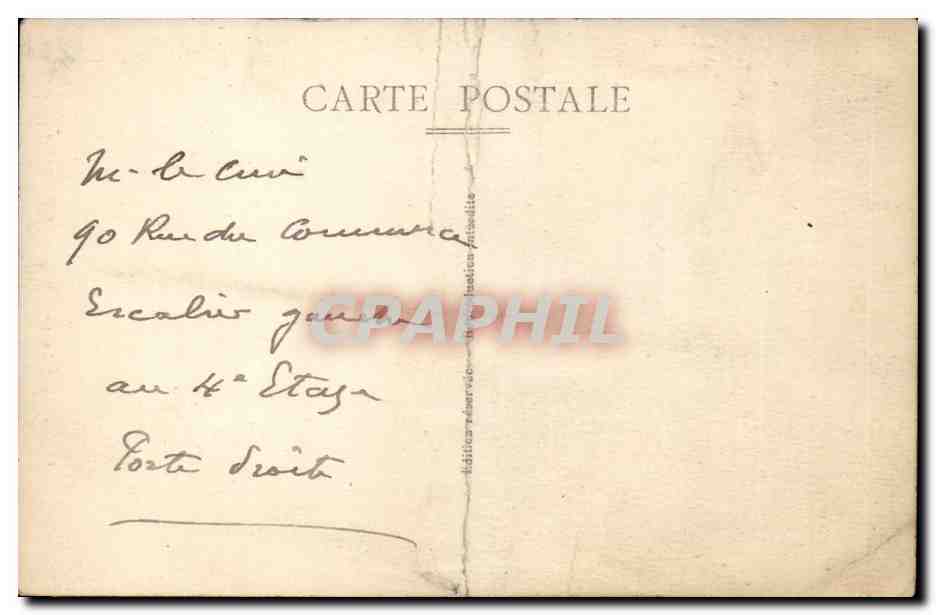 CARTE POSTALE
M- le Curé
90 Rue du Commerce
Escalier gauche
au 4e Etage
Porte droite
Edition réservée — Reproduction interdite
CPAPHIL